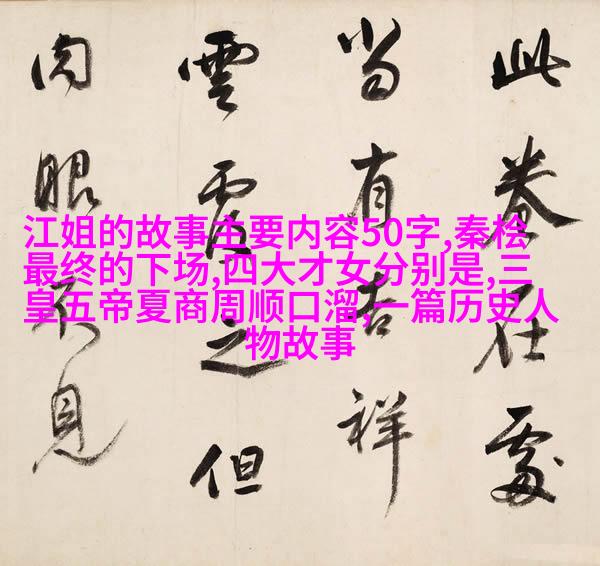 江姐的故事主要内容50字,秦桧
最终的下场,四大才女分别是,三
皇五帝夏商周顺口溜,一篇历史人
物故事
此卷在處
當有吉祥
雲覆之但
肉眼不見